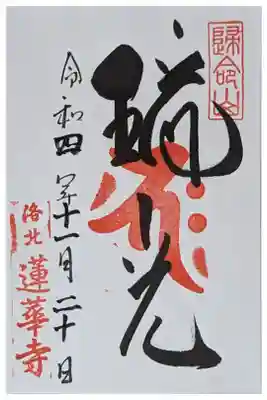 歸命山
光
令和四年十一月二十日
洛北
蓮華寺